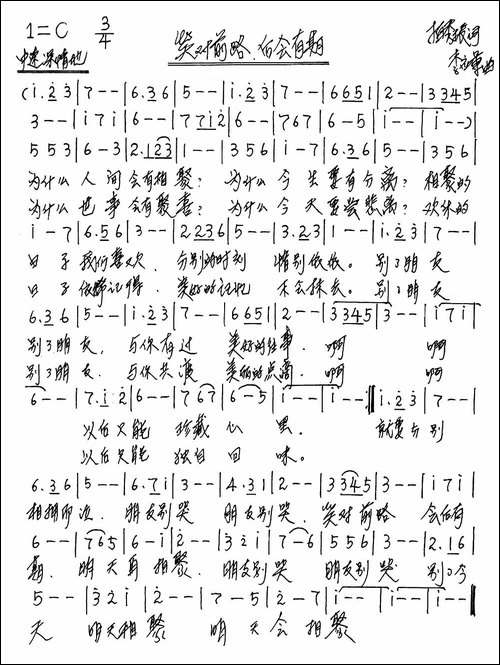 1=C 3/4
笑对前路、后会有期
中速 深情地
(i.2 3|7--|6.3 6|5--|i.2 3|7--|6 6 5 1|2--|3 3 4 5|
3--|i 7 i|6--|7 7 i 2|6--|7 6 7|6-5|i--|i--)|
5 5 3|6-3|2.1 2 3|1--|3 5 6|i-7|6.3 6|5--|3 5 6|
为什么 人间会有相聚? 为什么 今生要有分离? 相聚的
为什么 世事会有聚喜? 为什么 今天要尝悲离? 欢乐的
i-7|6.5 6|3--|2 2 3 6|5--|3.2 3|1--|i.2 3|7--|
日子 我们喜欢, 分别的时刻 惜别依依。 别了朋友
日子 依然记得, 美好的往忆 不会抹去。 别了朋友
6.3 6|5--|i.2 3|7--|6 6 5 1|2--|3 3 4 5|3--|i 7 i|
别了朋友, 与你有过 美好的往事. 啊 啊
别了朋友. 与你共渡 美丽的点滴. 啊 啊
6--|7.i 2|6--|7 6 7|6-5|i--|i--:‖i.2 3|7--|
以后只能 珍藏心里. 就要分别
以后只能 独自回味。
6.3 6|5--|6.7 i|3--|4.3 1|2--|3 3 4 5|3--|i 7 i|
相拥而泣. 朋友别哭 朋友别哭. 笑对前路 会后有
6--|7 6 5|6-i|2--|3 2 i|7-6|5 5 6|3--|2.1 6|
期. 明天再相聚. 朋友别哭 朋友别哭 别了今
5--|3 2 i|2--|7-5|2-7|i--|i--|i--|i--‖
天 明天相聚 明天会相聚